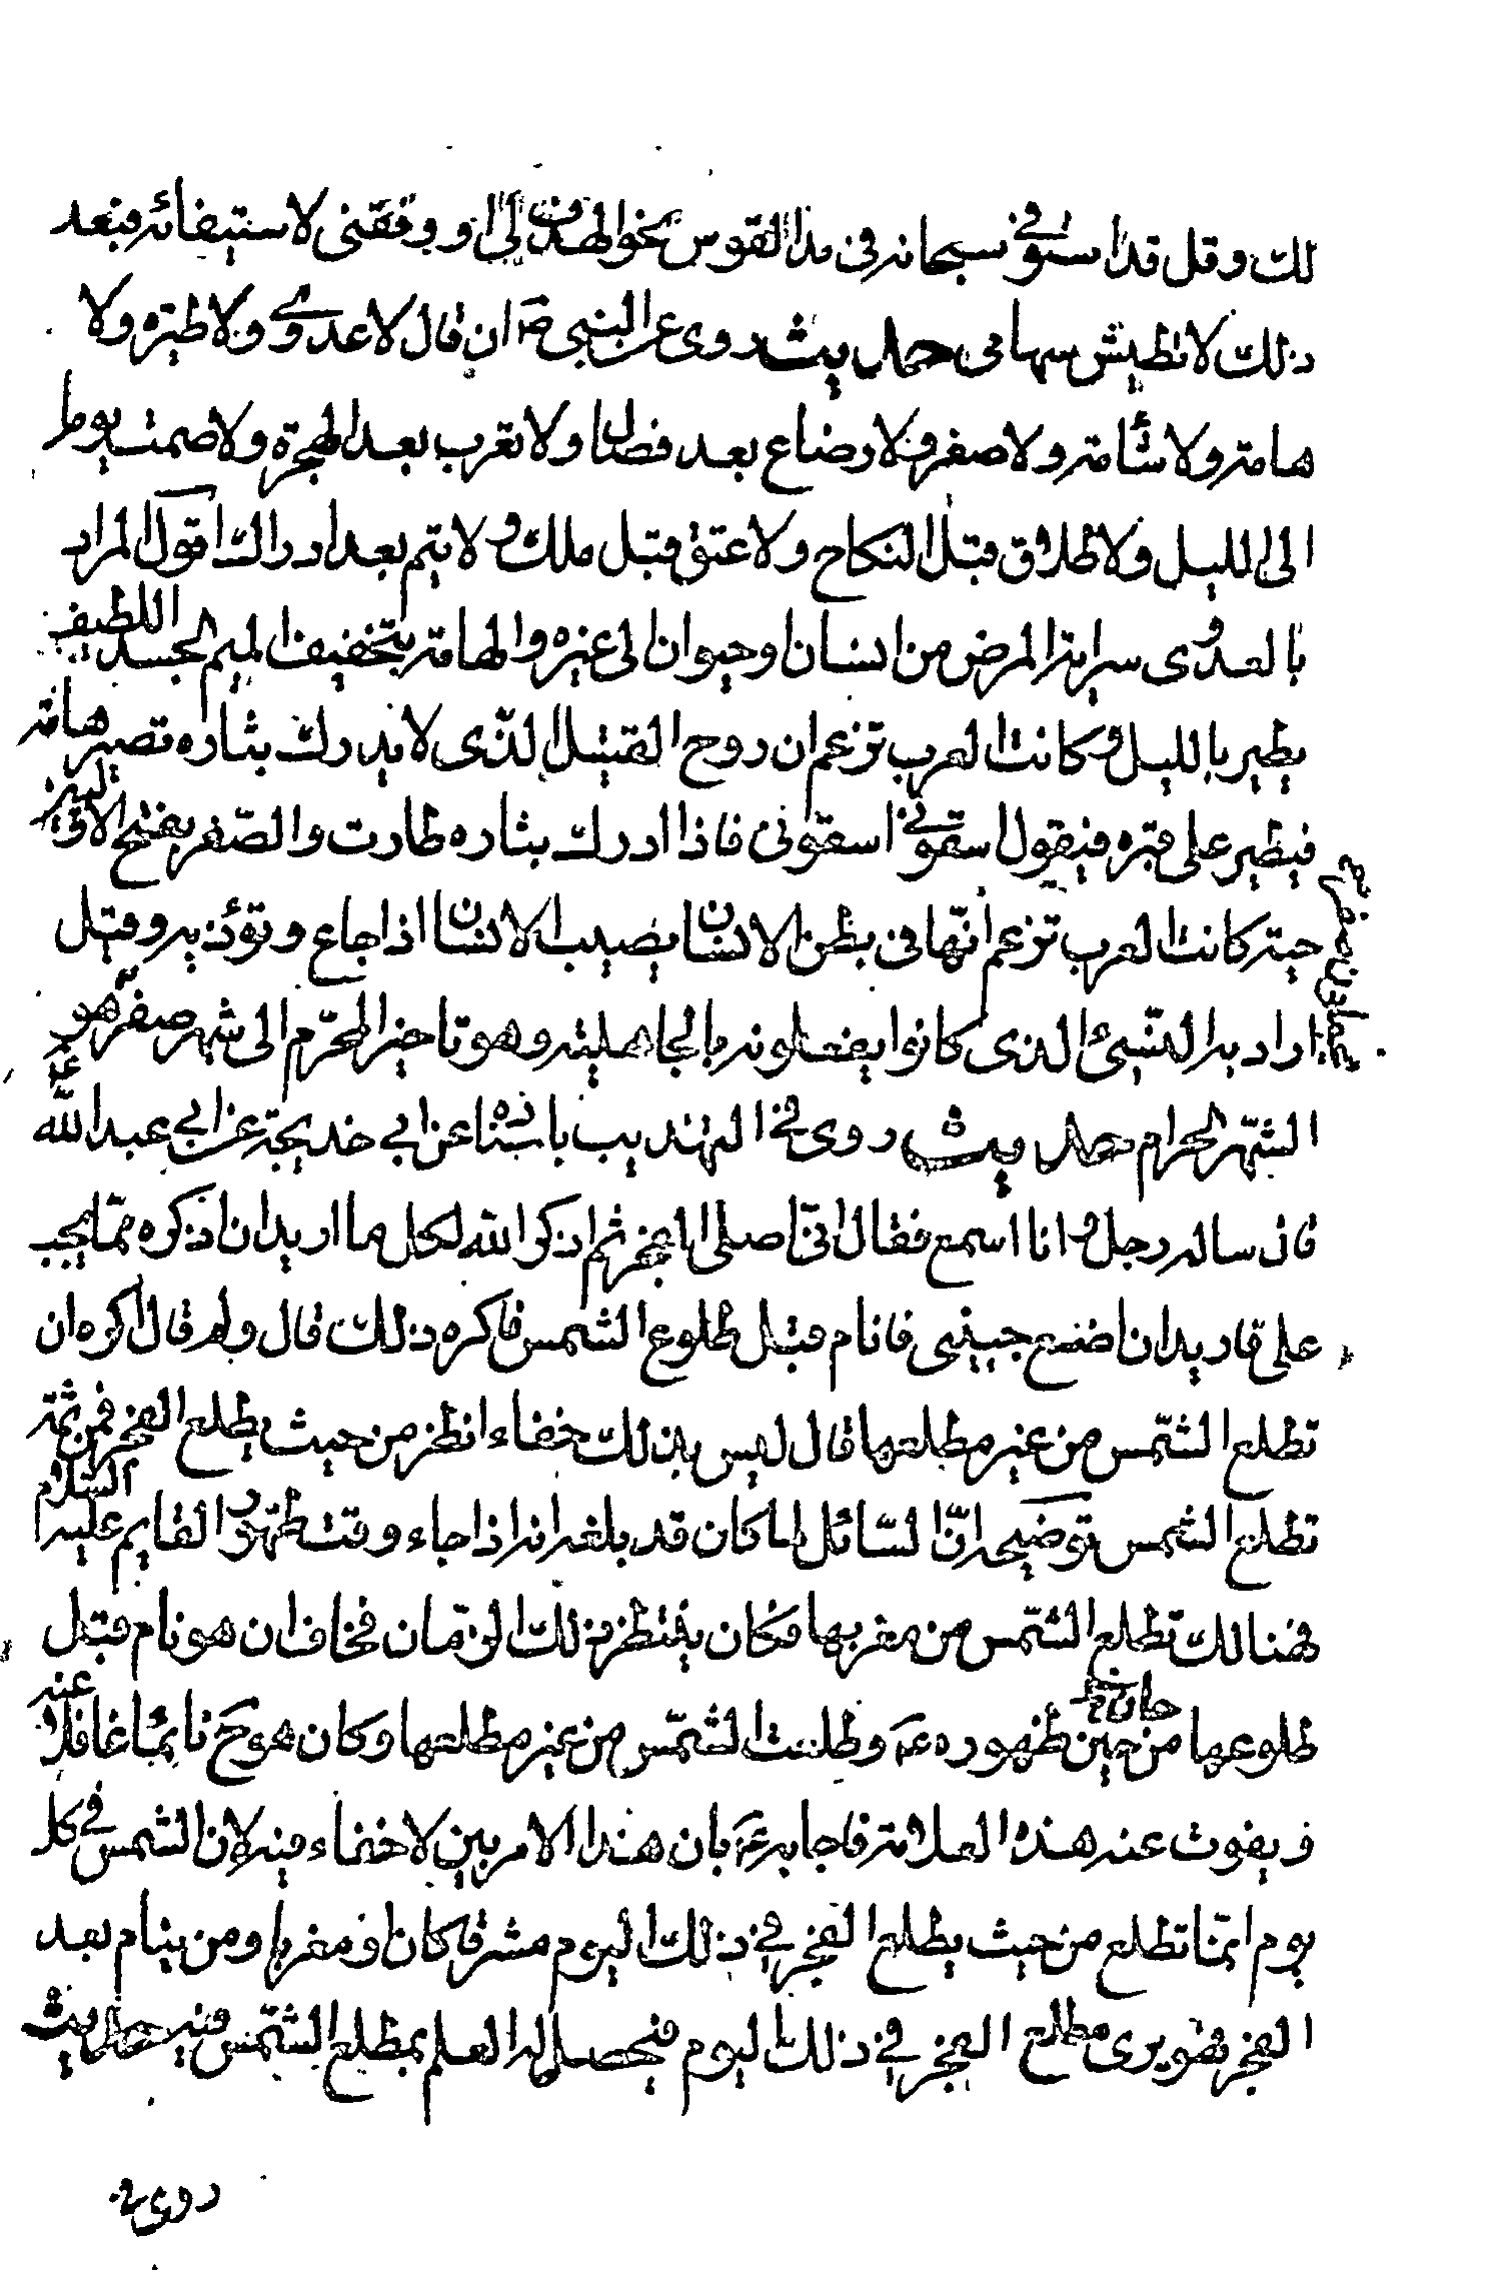 لك وقل قد استوفى سبحانه في مد القوس نحو الهدف لى او وفقنى لاستيفائه فبعد
ذلك لا تطيش سهامى حديث روى عن النبي ص ان قال لا عدوى ولا طيره ولا
هامة ولا شأمة ولا صفر ولا رضاع بعد فصال ولا تعرب بعد الهجرة ولا صمت يوما
الى الليل ولا طلاق قبل النكاح ولا عتق قبل ملك ولا يتم بعد ادراك اقول المراد
بالعدوى سراية المرض من انسان او حيوان الى غيره والهامة بتخفيف الميم لجسد اللطيف
يطير بالليل وكانت العرب تزعم ان روح القتيل الذى لا يدرك بثاره تصير هامة
فيطير على قبره فيقول اسقونى اسقونى فاذا ادرك بثاره طارت والصفر بفتح الاولين
حية كانت العرب تزعم انها في بطن الانسان يصيب الانسان اذا جاع وتؤذيه وقيل
اراد به النسئ الذى كانوا يفعلونه بالجاهلية وهو تاخير المحرم الى شهر صفر هو
الشهر الحرام حديث روى في التهذيب باسناده عن ابي خديجة عن ابي عبد الله ع
قال ساله رجل وانا اسمع فقال انى اصلى الفجر ثم اذكر الله لكل ما اريد ان اذكره مما يجب
على فاريد ان اضع جنبى فانام قبل طلوع الشمس فاكره ذلك قال ولم قال اكره ان
تطلع الشمس من غير مطلعها قال ليس بذلك خفاء انظر من حيث يطلع الفجر فمن ثمة
تطلع الشمس توضيح ان السائل لما كان قد بلغه انه اذا جاء وقت ظهور القايم عليه السلام
فهنالك تطلع الشمس من مغربها فكان ينتظر ذلك الزمان فخاف ان هو نام قبل
طلوعها من حين ظهوره ع وطلعت الشمس من غير مطلعها وكان هو ح نائما غافلا عنه
فيفوت عنه هذه العلامة فاجابه ع بان هذا الامر بين لا خفاء فيه لان الشمس في كل
يوم انما تطلع من حيث يطلع الفجر في ذلك اليوم مشرقا كان او مغربا ومن ينام بعد
الفجر فهو يرى مطلع الفجر في ذلك اليوم فيحصل له العلم بمطلع الشمس فيه حديث
روى في